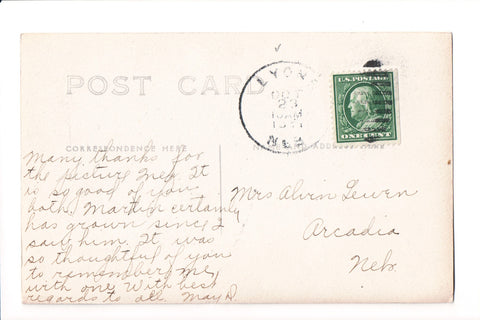 POST CARD
LYONS
OCT
23
NEB.
U.S. POSTAGE
ONE CENT
CORRESPONDENCE HERE
Many thanks for
the picture It
is so good of you
both. Martin certainly
has grown since I
saw him. It was
so thoughtful of you
to ramember me,
with one With best
regards to all. May D.
Mrs Alvin Lewen
Arcadia
Nebr.